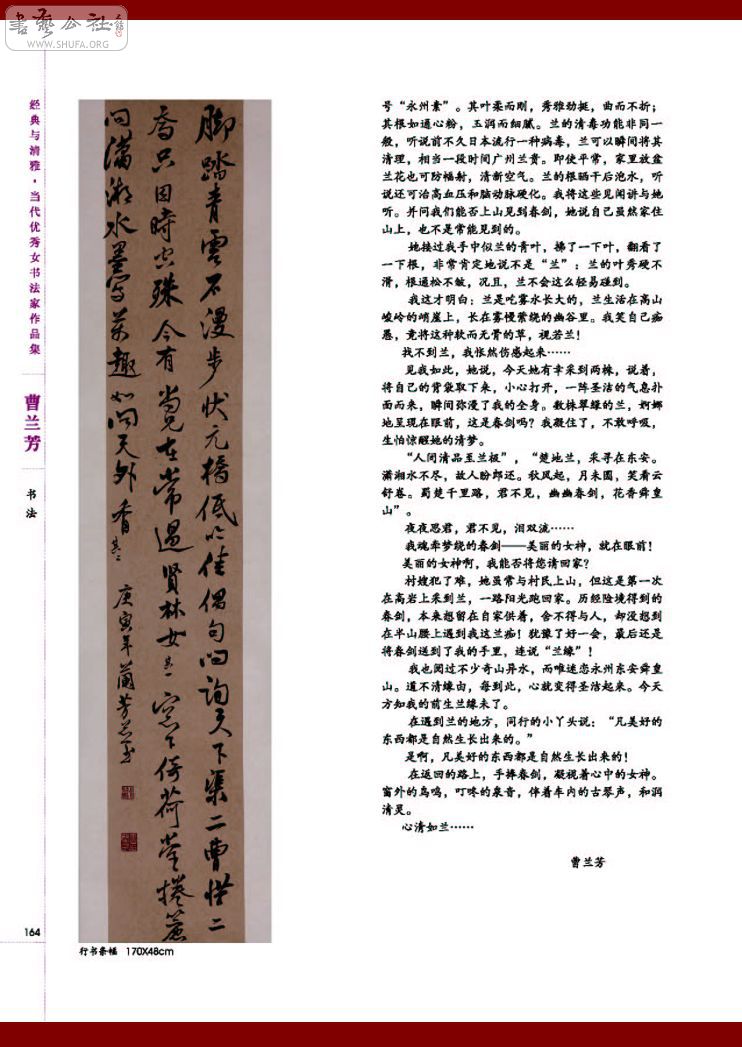 書藝公社
WWW.SHUFA.ORG
经典与清雅·当代优秀女书法家作品集
曹兰芳
书法
164
脚踏青云不漫步状元桥低吟佳偶句问询天下渠二曹惜二
乔只因时空殊今有当兄在常遇贤林女其一窓下倚荷堂捲簾
问潇湘水墨写茶趣如问天外香其二
庚寅年兰芳
行书条幅 170X48cm
号“永州素”。其叶柔而刚，秀雅劲挺，曲而不折；
其根如通心粉，玉润而细腻。兰的清毒功能非同一
般，听说前不久日本流行一种病毒，兰可以瞬间将其
清理，相当一段时间广州兰贵。即使平常，家里放盆
兰花也可防幅射，清新空气。兰的根晒干后泡水，听
说还可治高血压和脑动脉硬化。我将这些见闻讲与她
听。并问我们能否上山见到春剑，她说自己虽然家住
山上，也不是常能见到的。
她接过我手中似兰的青叶，拂了一下叶，翻看了
一下根，非常肯定地说不是“兰”：兰的叶秀硬不
滑，根通松不皱，况且，兰不会这么轻易碰到。
我这才明白：兰是吃雾水长大的，兰生活在高山
峻岭的峭崖上，长在雾慢萦绕的幽谷里。我笑自己痴
愚，竟将这种软而无骨的草，视若兰！
找不到兰，我怅然伤感起来……
见我如此，她说，今天她有幸采到两株，说着，
将自己的背袋取下来，小心打开，一阵圣洁的气息扑
面而来，瞬间弥漫了我的全身。数株翠绿的兰，婀娜
地呈现在眼前，这是春剑吗？我凝住了，不敢呼吸，
生怕惊醒她的清梦。
“人间清品至兰极”，“楚地兰，采寻在东安。
潇湘水不尽，故人盼郎还。秋风起，月未圆，笑看云
舒卷。蜀楚千里路，君不见，幽幽春剑，花香舜皇
山”。
夜夜思君，君不见，泪双流……
我魂牵梦绕的春剑——美丽的女神，就在眼前！
美丽的女神啊，我能否将您请回家？
村嫂犯了难，她虽常与村民上山，但这是第一次
在高岩上采到兰，一路阳光跑回家。历经险境得到的
春剑，本来想留在自家供着，舍不得与人，却没想到
在半山腰上遇到我这兰痴！犹豫了好一会，最后还是
将春剑送到了我的手里，连说“兰缘”！
我也阅过不少奇山异水，而唯迷恋永州东安舜皇
山。道不清缘由，每到此，心就变得圣洁起来。今天
方知我的前生兰缘未了。
在遇到兰的地方，同行的小丫头说：“凡美好的
东西都是自然生长出来的。”
是啊，凡美好的东西都是自然生长出来的！
在返回的路上，手捧春剑，凝视着心中的女神。
窗外的鸟鸣，叮咚的泉音，伴着车内的古琴声，和润
清灵。
心清如兰……
曹兰芳